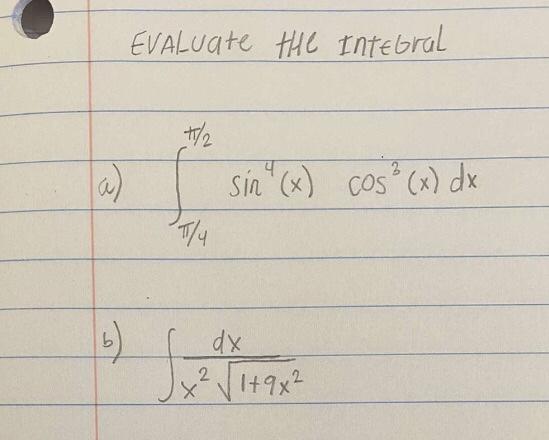 EVALUate tHe IntEGral
a) ∫_{π/4}^{π/2} sin⁴(x) cos³(x) dx
b) ∫ dx / (x² √(1+9x²))